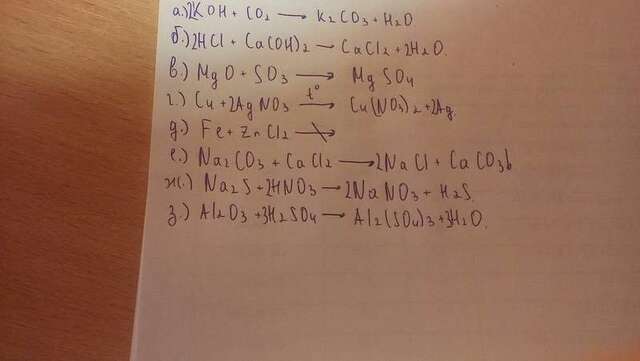 а.) 2KOH + CO2 → K2CO3 + H2O
б.) 2HCl + Ca(OH)2 → CaCl2 + 2H2O.
в.) MgO + SO3 → MgSO4
г.) Cu + 2AgNO3 t° → Cu(NO3)2 + 2Ag.
д.) Fe + ZnCl2 ↛
е.) Na2CO3 + CaCl2 → 2NaCl + CaCO3↓
ж.) Na2S + 2HNO3 → 2NaNO3 + H2S.
з.) Al2O3 + 3H2SO4 → Al2(SO4)3 + 3H2O.